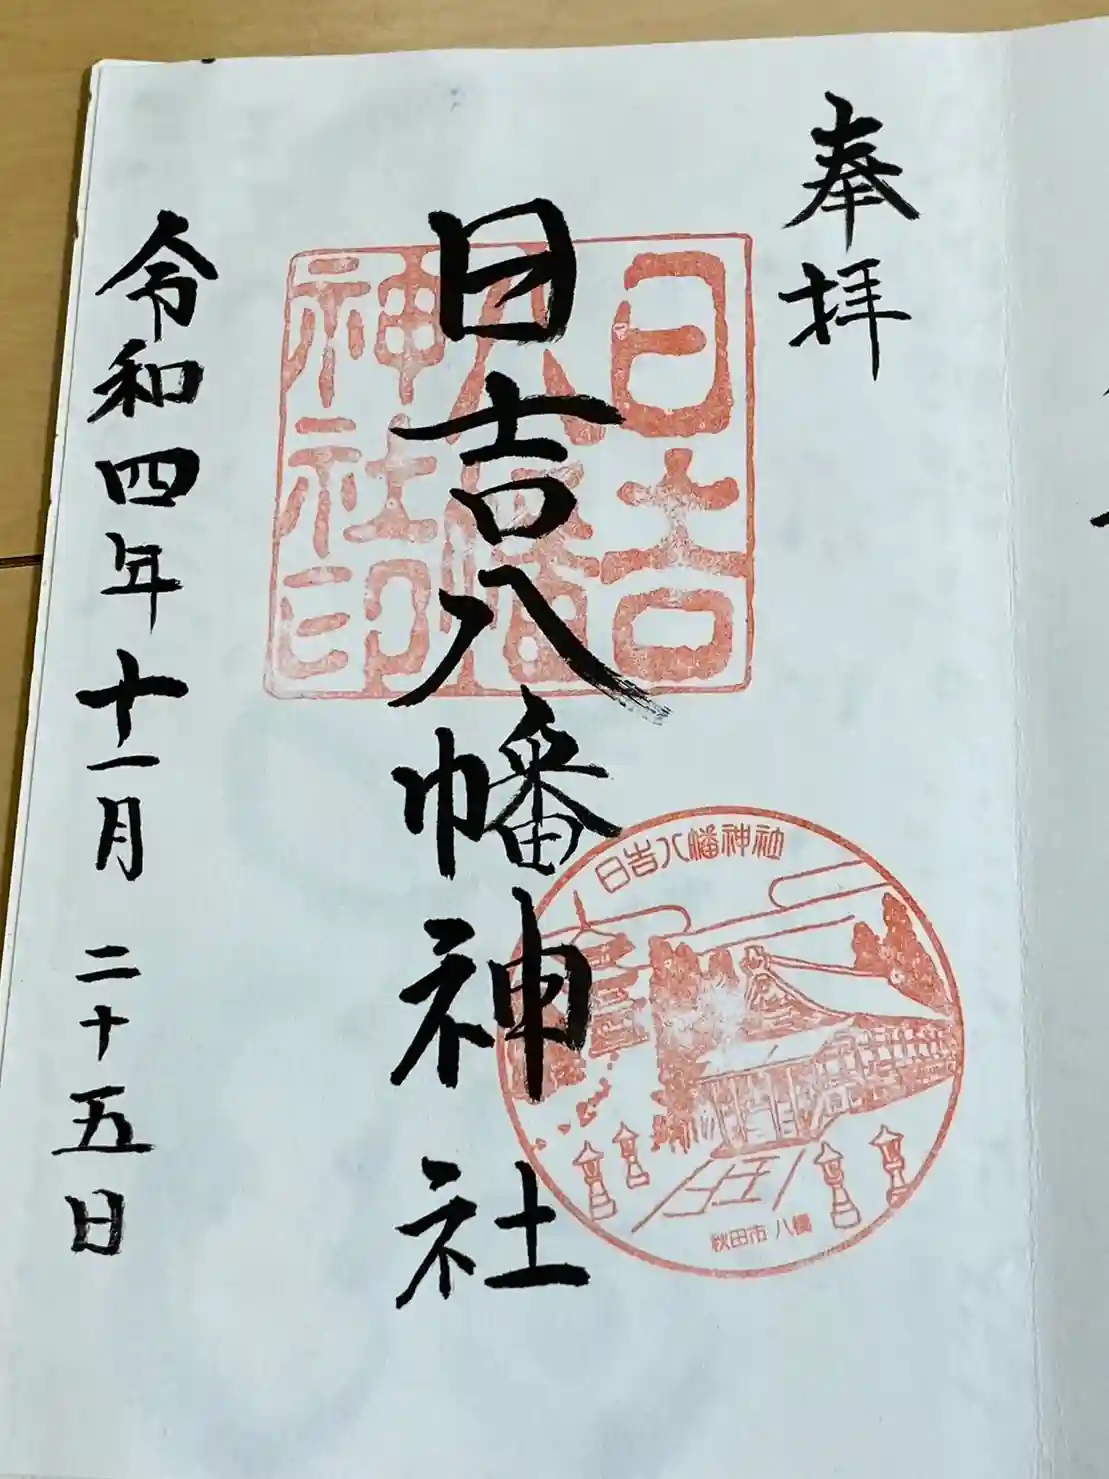 奉拝
日吉八幡神社
日吉
八幡
神社印
日吉八幡神社
秋田市 八橋
令和四年十一月二十五日